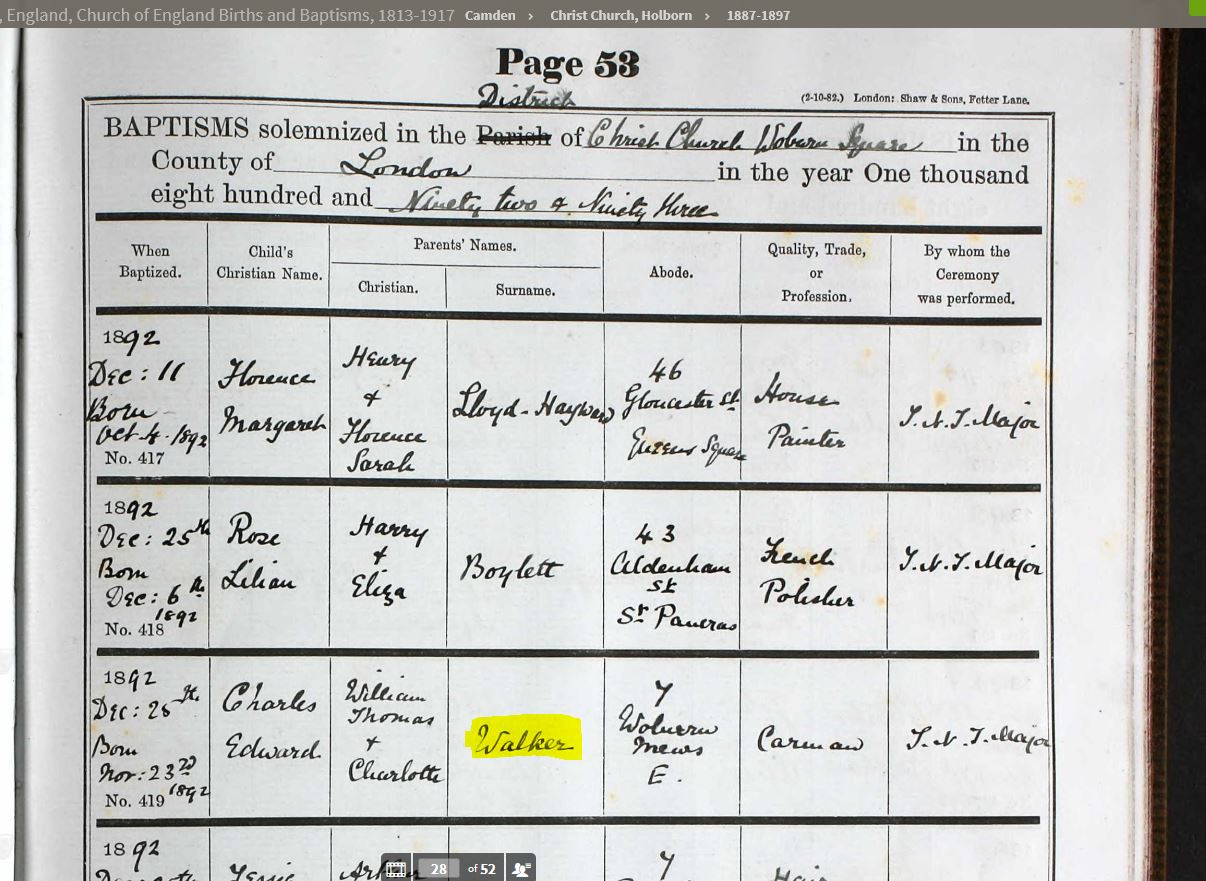 , England, Church of England Births and Baptisms, 1813-1917 Camden › Christ Church, Holborn › 1887-1897
Page 53
District
(2-10-82.) London: Shaw & Sons, Fetter Lane.
BAPTISMS solemnized in the Parish of Christ Church Woburn Square in the
County of London in the year One thousand
eight hundred and Ninety two & Ninety three
When Baptized.
Child's Christian Name.
Parents' Names.
Christian.
Surname.
Abode.
Quality, Trade, or Profession.
By whom the Ceremony was performed.
1892
Dec: 11
Born
Oct 4. 1892
No. 417
Florence
Margaret
Henry
&
Florence
Sarah
Lloyd-Hayward
46
Gloucester St
Queens Square
House
Painter
J. N. J. Major
1892
Dec: 25th
Born
Dec: 6th
1892
No. 418
Rose
Lilian
Harry
&
Eliza
Boylett
43
Aldenham
St
St Pancras
French
Polisher
J. N. J. Major
1892
Dec: 25th
Born
Nov: 23rd
1892
No. 419
Charles
Edward
William
Thomas
&
Charlotte
Walker
7
Woburn
Mews
E.
Carman
J. N. J. Major
1892
Jessie
7
Hair
28 of 52